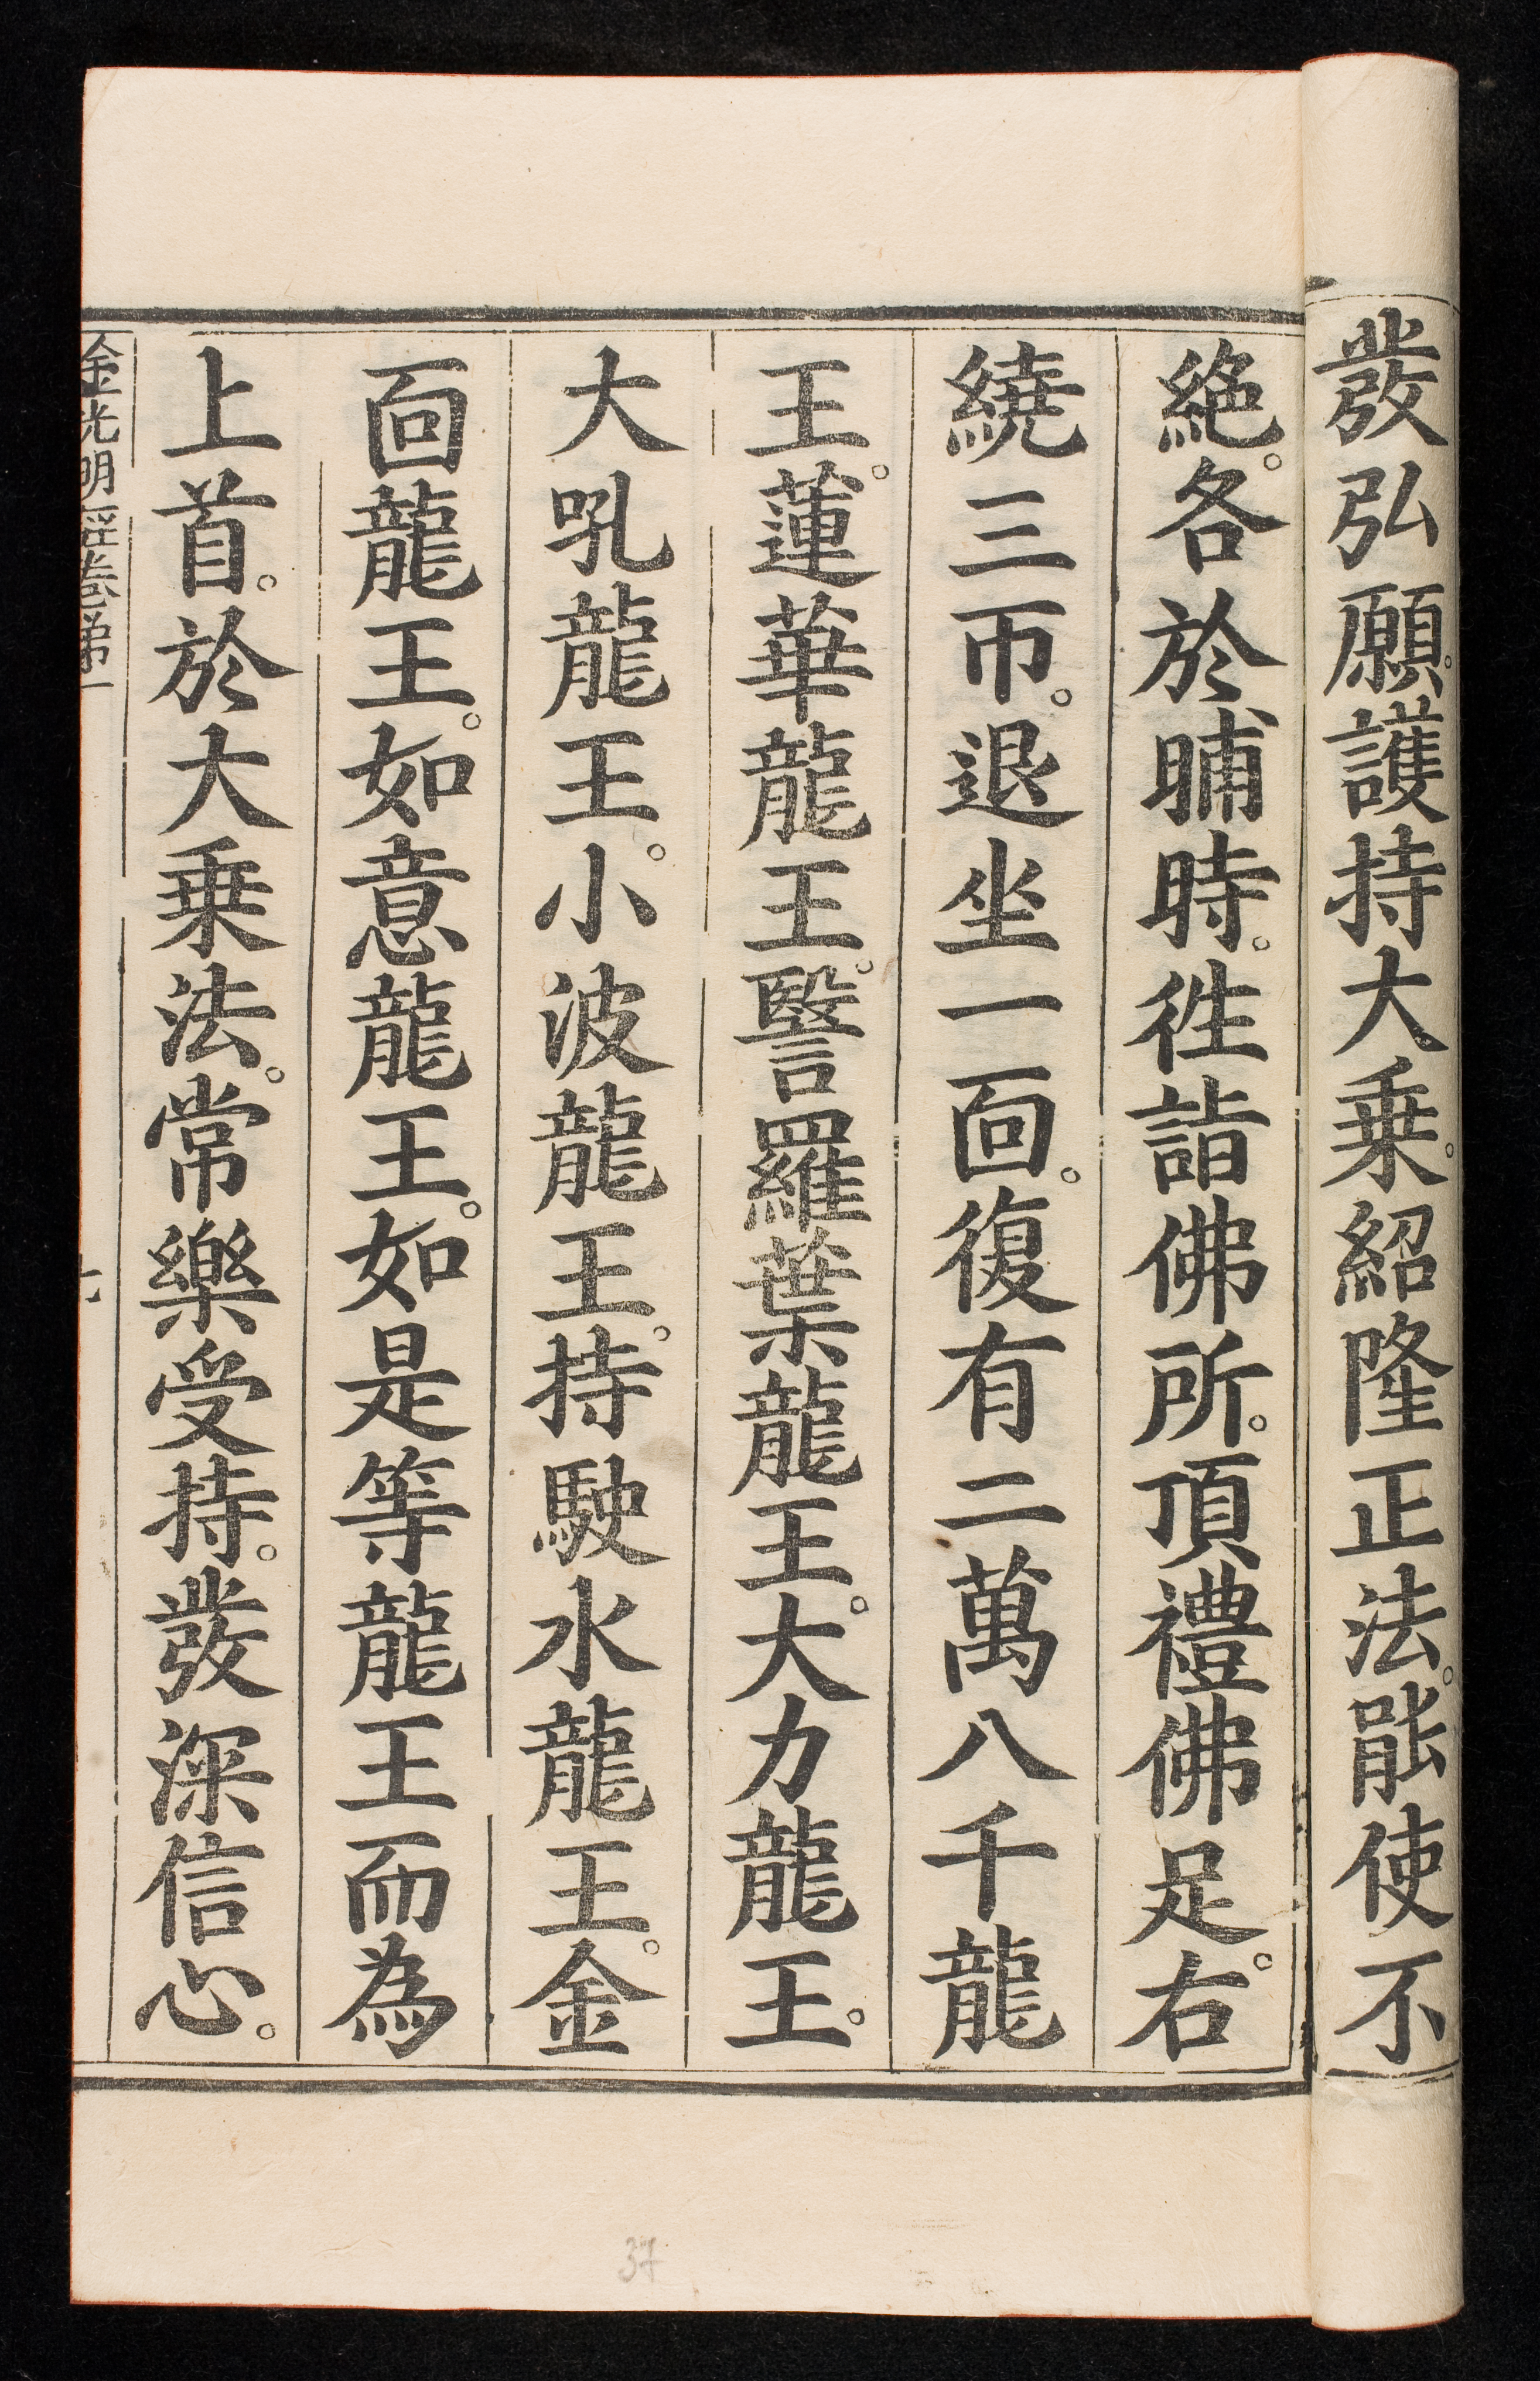 發弘願。護持大乗。紹隆正法。能使不
絶。各於晡時。徃詣佛所。頂禮佛足。右
繞三帀。退坐一面。復有二萬八千龍
王。蓮華龍王。瑿羅葉龍王。大力龍王。
大吼龍王。小波龍王。持駛水龍王。金
面龍王。如意龍王。如是等龍王而為
上首。於大乗法。常樂受持。發深信心。
金光明經卷第一
37